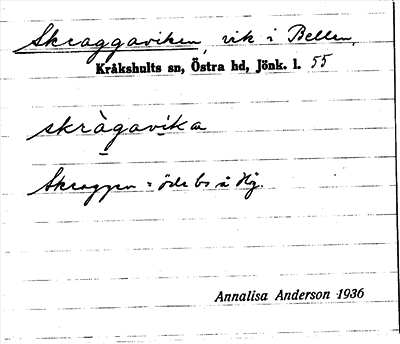 Skraggaviken, vik i Bellen,
Kråkshults sn, Östra hd, Jönk. l. 55
skràgavika
Skraggen = ödebs å Hg.
Annalisa Anderson 1936